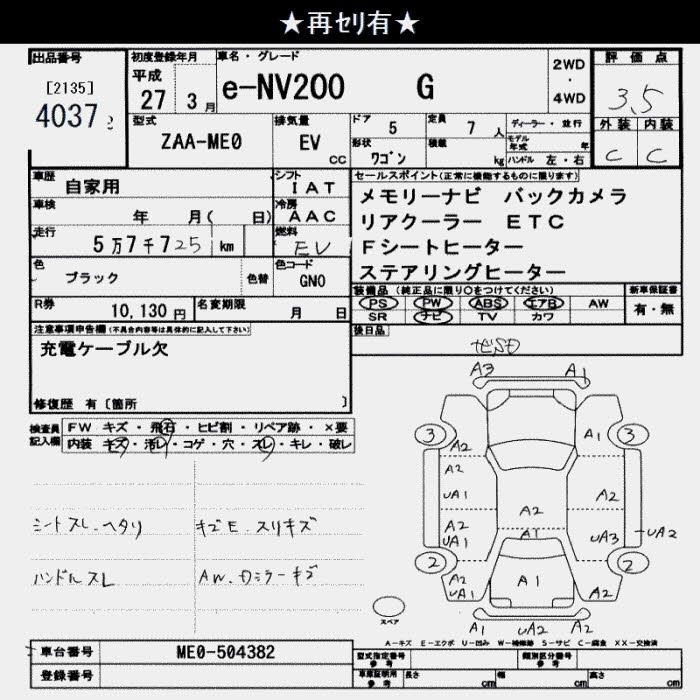 ★再セリ有★
出品番号
[2135]
4037
初度登録年月
平成
27 3 月
車名・グレード
e-NV200 G
2WD
・
4WD
評価点
3.5
外装 内装
C C
型式
ZAA-ME0
排気量
EV
cc
ドア
5
定員
7 人
形状
ワゴン
積載
kg
ディーラー・並行
モデル年式 年
ハンドル 左・右
車歴
自家用
シフト
IAT
車検
年 月( 日)
冷房
AAC
走行
5万7千725 km
燃料
EV
色
ブラック
色替
色コード
GN0
R券
10,130 円
名変期限
月 日
セールスポイント(正常に機能するものに限ります)
メモリーナビ バックカメラ
リアクーラー ETC
Fシートヒーター
ステアリングヒーター
装備品 (純正品に限り○をつけてください)
PS PW ABS エアB AW
SR ナビ TV カワ
新車保証書
有・無
後日品
注意事項申告欄(不具合内容等は具体的に記入して下さい)
充電ケーブル欠
修復歴 有〔箇所 〕
検査員記入欄
FW キズ・飛石・ヒビ割・リペア跡・×要
内装 キズ・汚レ・コゲ・穴・スレ・キレ・破レ
シートスレ・ヘタリ
キズE、スリキズ
ハンドルスレ
AW、カミラーキズ
A3 A1
3 3
A2 A1
A2
UA1 A2 A2
A2 UA1 A1 UA3 UA2
2 2
A2 UA1 A1 A2
A1 UA2 A2
スペア
A-キズ E-エクボ U-凹み W-補修跡 S-サビ C-腐食 XX-交換済
車台番号
ME0-504382
登録番号
型式指定番号
参考
類別区分番号
参考
車庫証明用
参考
長さ cm
幅 cm
高さ cm